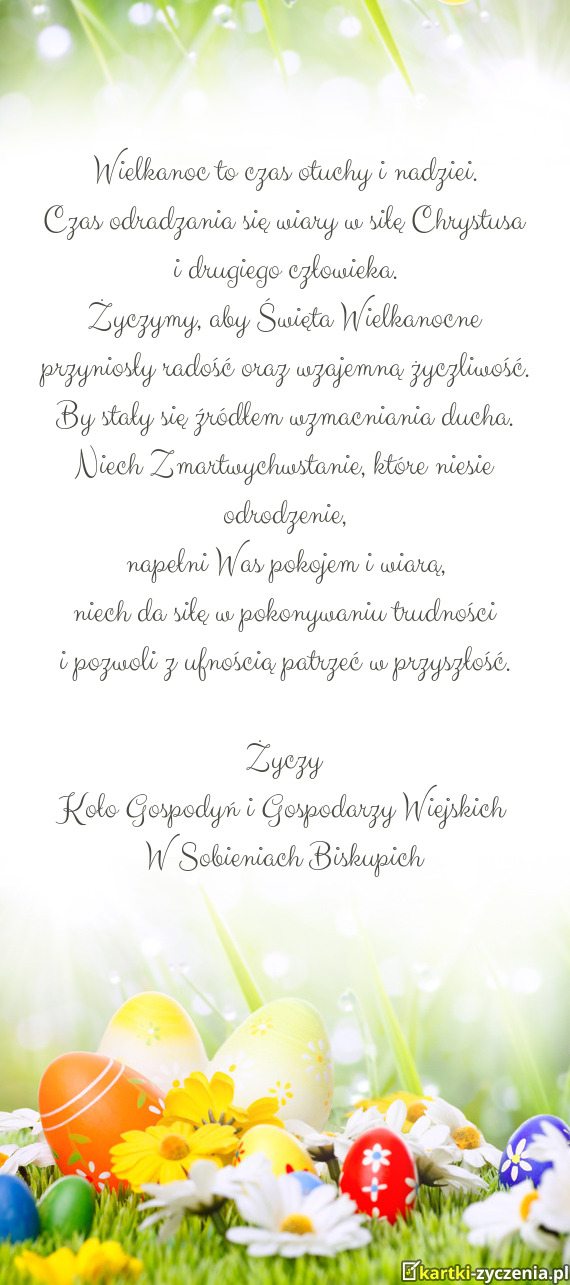 Wielkanoc to czas otuchy i nadziei.
Czas odradzania się wiary w siłę Chrystusa
i drugiego człowieka.
Życzymy, aby Święta Wielkanocne
przyniosły radość oraz wzajemną życzliwość.
By stały się źródłem wzmacniania ducha.
Niech Zmartwychwstanie, które niesie
odrodzenie,
napełni Was pokojem i wiarą,
niech da siłę w pokonywaniu trudności
i pozwoli z ufnością patrzeć w przyszłość.
Życzy
Koło Gospodyń i Gospodarzy Wiejskich
W Sobieniach Biskupich
kartki-zyczenia.pl